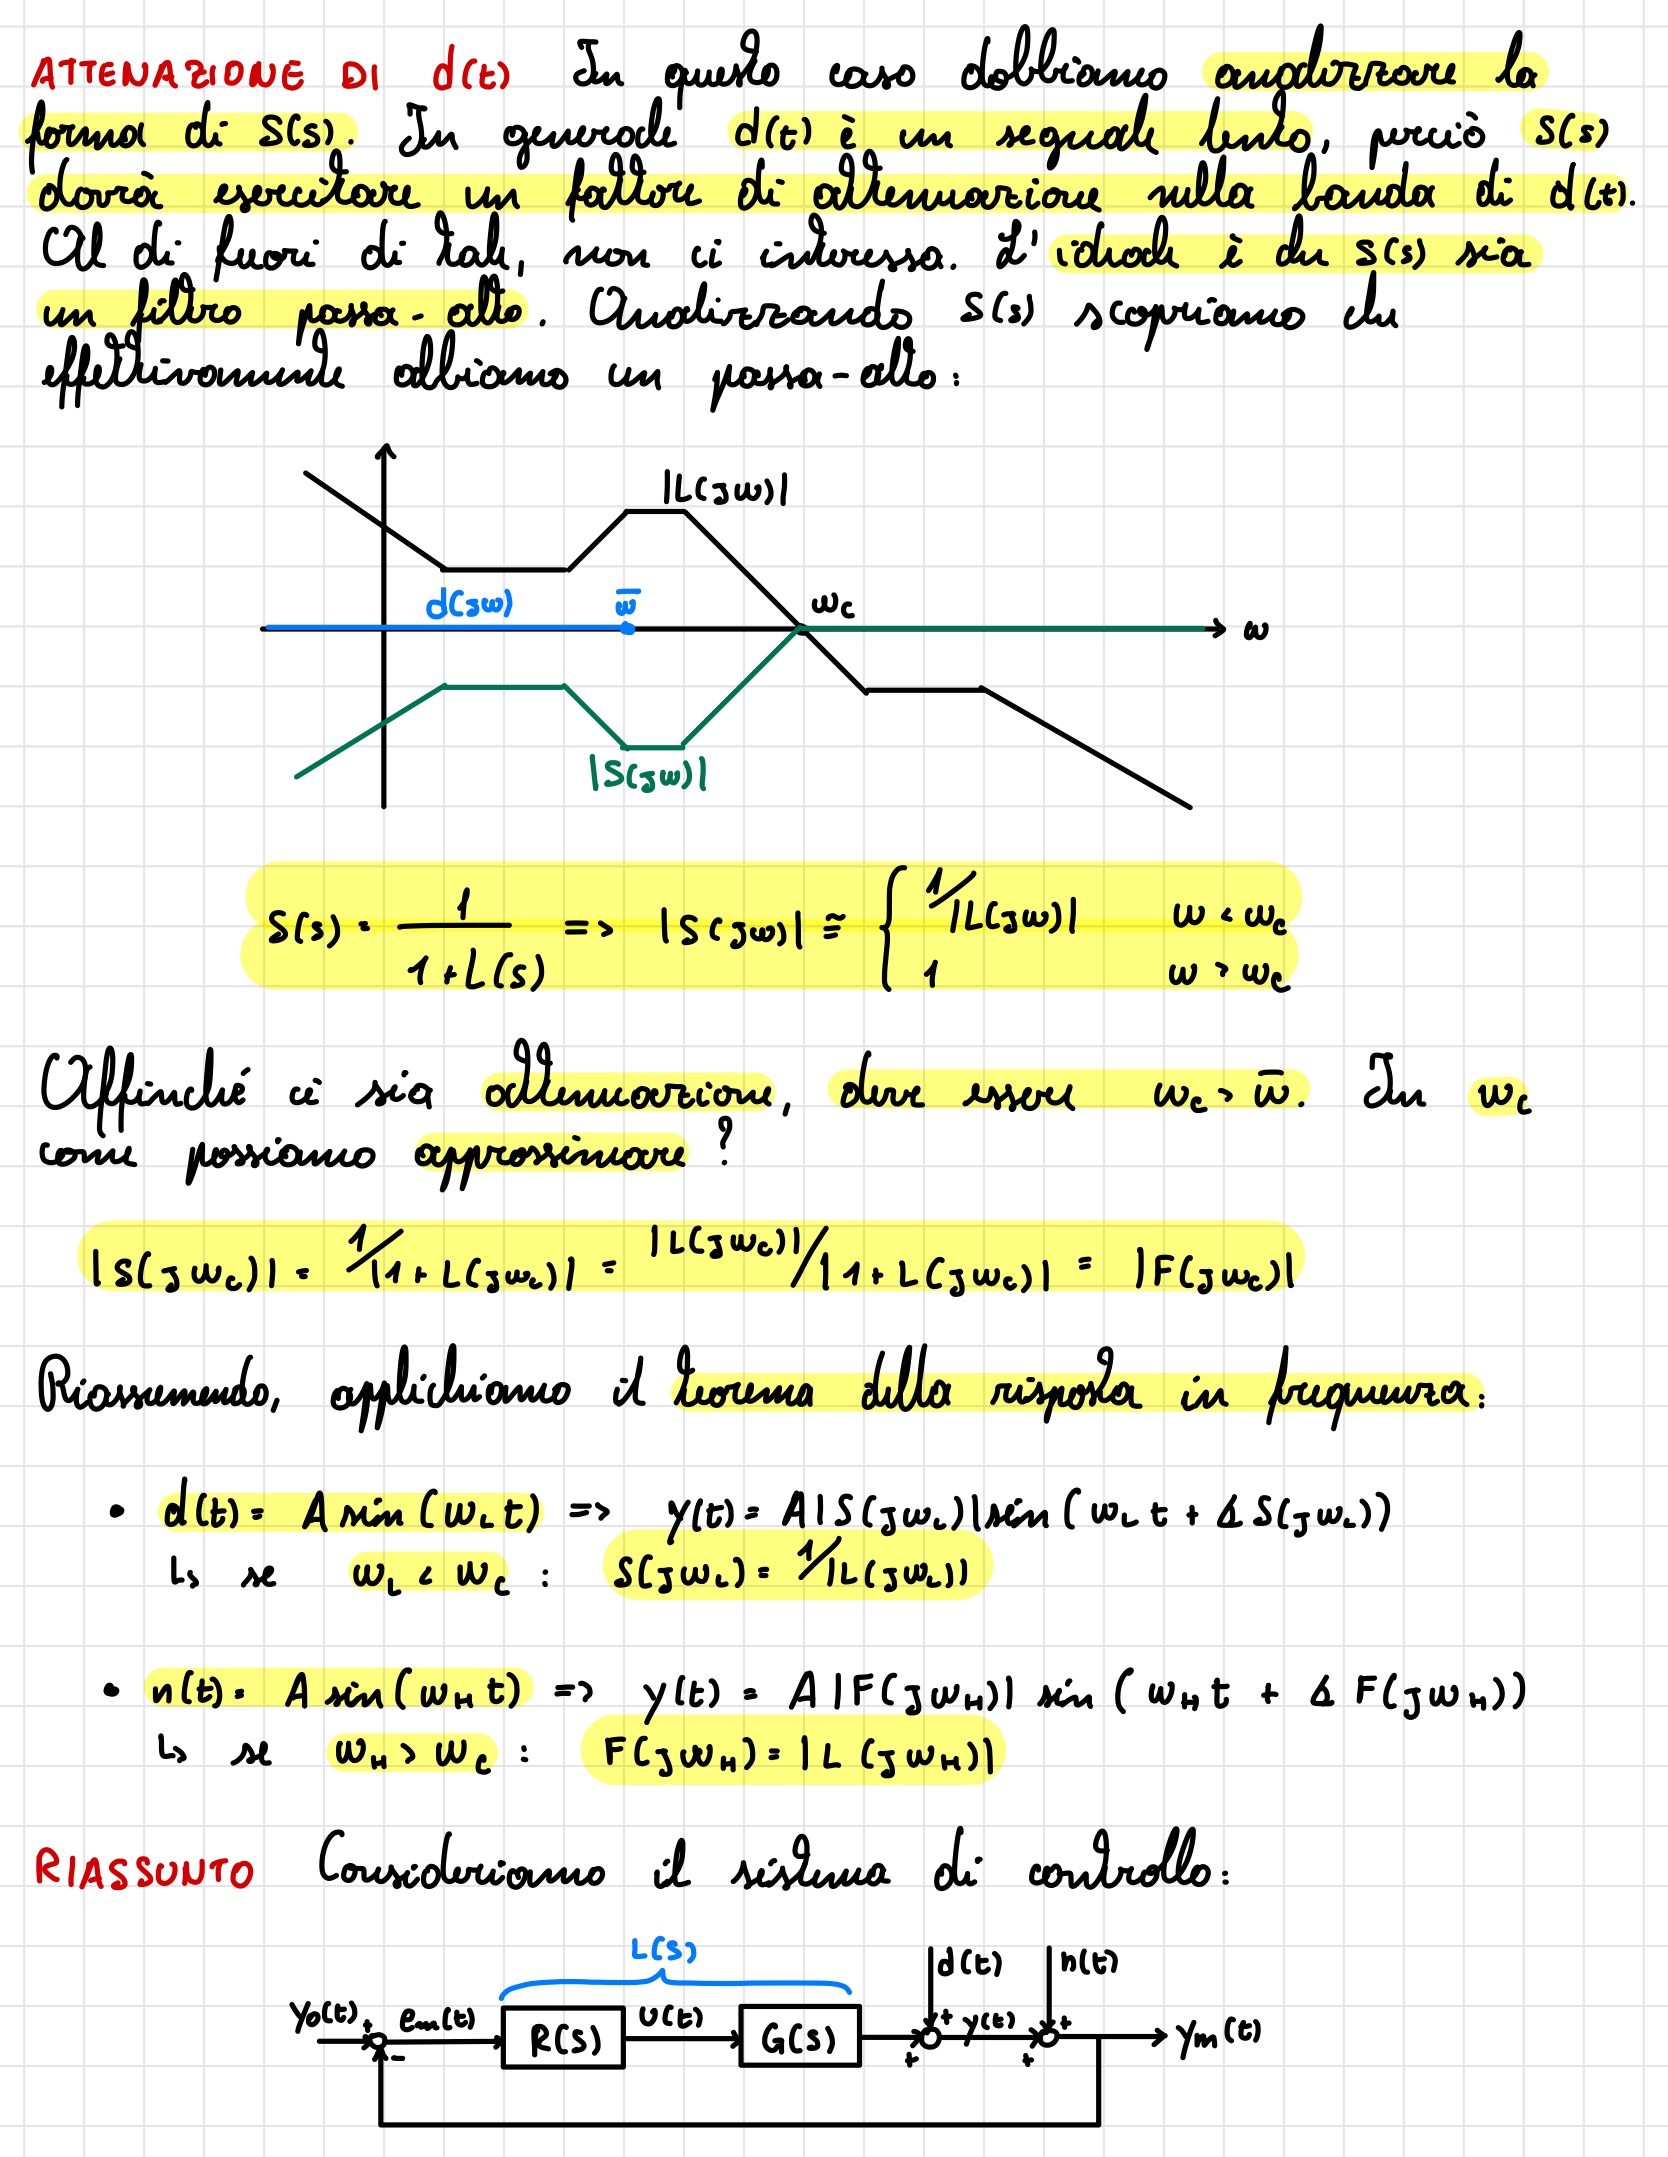 ATTENAZIONE DI d(t) In questo caso dobbiamo analizzare la
forma di S(s). In generale d(t) è un segnale lento, perciò S(s)
dovrà esercitare un fattore di attenuazione sulla banda di d(t).
Al di fuori di tale, non ci interessa. L'ideale è che S(s) sia
un filtro passa-alto. Analizzando S(s) scopriamo che
effettivamente abbiamo un passa-alto:
|L(jω)|
d(jω) ω̅ ωc
ω
|S(jω)|
S(s) = 1/(1+L(s)) => |S(jω)| ≅ { 1/|L(jω)| ω < ωc
1 ω > ωc
Affinché ci sia attenuazione, deve essere ωc > ω̅. In ωc
come possiamo approssimare?
|S(jωc)| = 1/|1+L(jωc)| = |L(jωc)|/|1+L(jωc)| = |F(jωc)|
Riassumendo, applichiamo il teorema della risposta in frequenza:
• d(t) = A sin(ωL t) => y(t) = A|S(jωL)|sin(ωL t + ∡ S(jωL))
↳ se ωL < ωc : S(jωL) = 1/|L(jωL)|
• n(t) = A sin(ωH t) => y(t) = A|F(jωH)| sin(ωH t + ∡ F(jωH))
↳ se ωH > ωc : F(jωH) = |L(jωH)|
RIASSUNTO Consideriamo il sistema di controllo:
L(s) d(t) n(t)
yo(t) + em(t) R(s) u(t) G(s) + y(t) + ym(t)
- + +